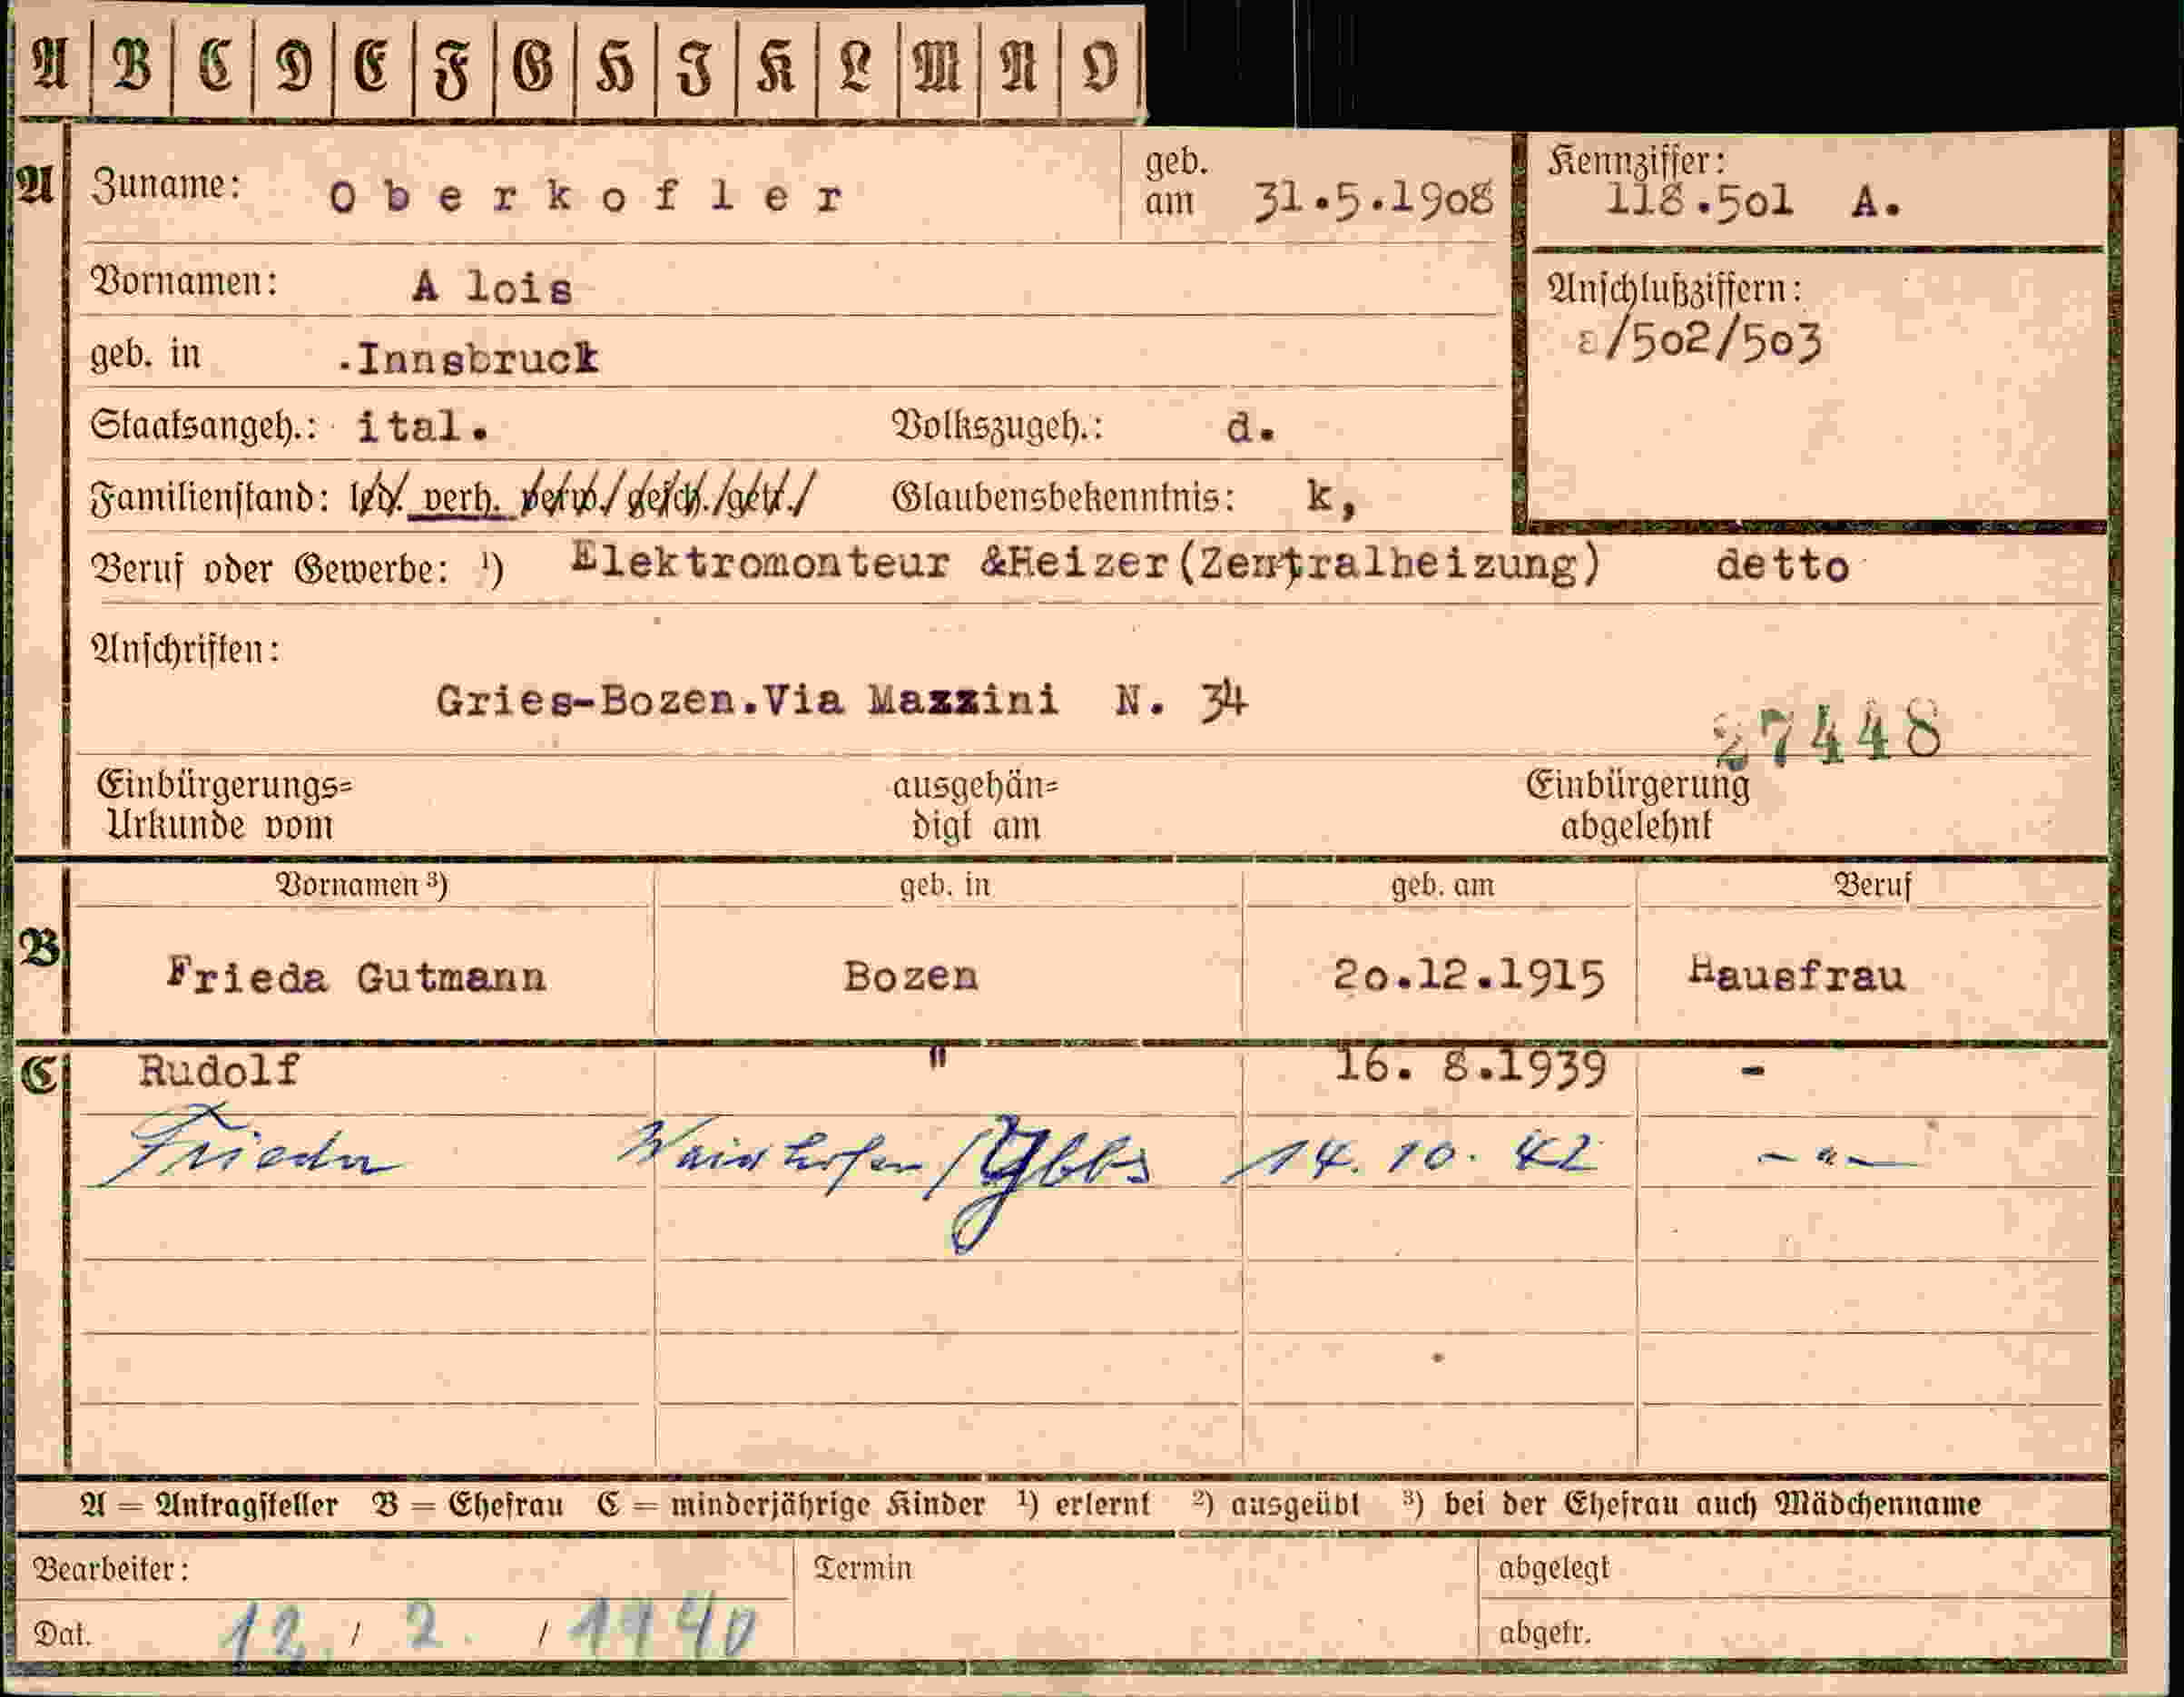 A B C D E F G H I K L M N O
A Zuname: Oberkofler geb. am 31.5.1908 Kennziffer: 118.501 A.
Vornamen: A lois
Anschlußziffern:
geb. in .Innsbruck
/502/503
Staatsangeh.: ital. Volkszugeh.: d.
Familienstand: led. verh. verw./gesch./getr./ Glaubensbekenntnis: k,
Beruf oder Gewerbe: ¹) Elektromonteur &Heizer(Zentralheizung) detto
Anschriften:
Gries-Bozen.Via Mazzini N. 34
27448
Einbürgerungs= ausgehän= Einbürgerung
Urkunde vom digt am abgelehnt
Vornamen ³) geb. in geb. am Beruf
B Frieda Gutmann Bozen 20.12.1915 Hausfrau
C Rudolf " 16. 8.1939 -
Frieda Waidhofen/Ybbs 14.10.42 -"-
A = Antragsteller B = Ehefrau C = minderjährige Kinder ¹) erlernt ²) ausgeübt ³) bei der Ehefrau auch Mädchenname
Bearbeiter: Termin abgelegt
Dat. 12. / 2. / 1940 abgetr.